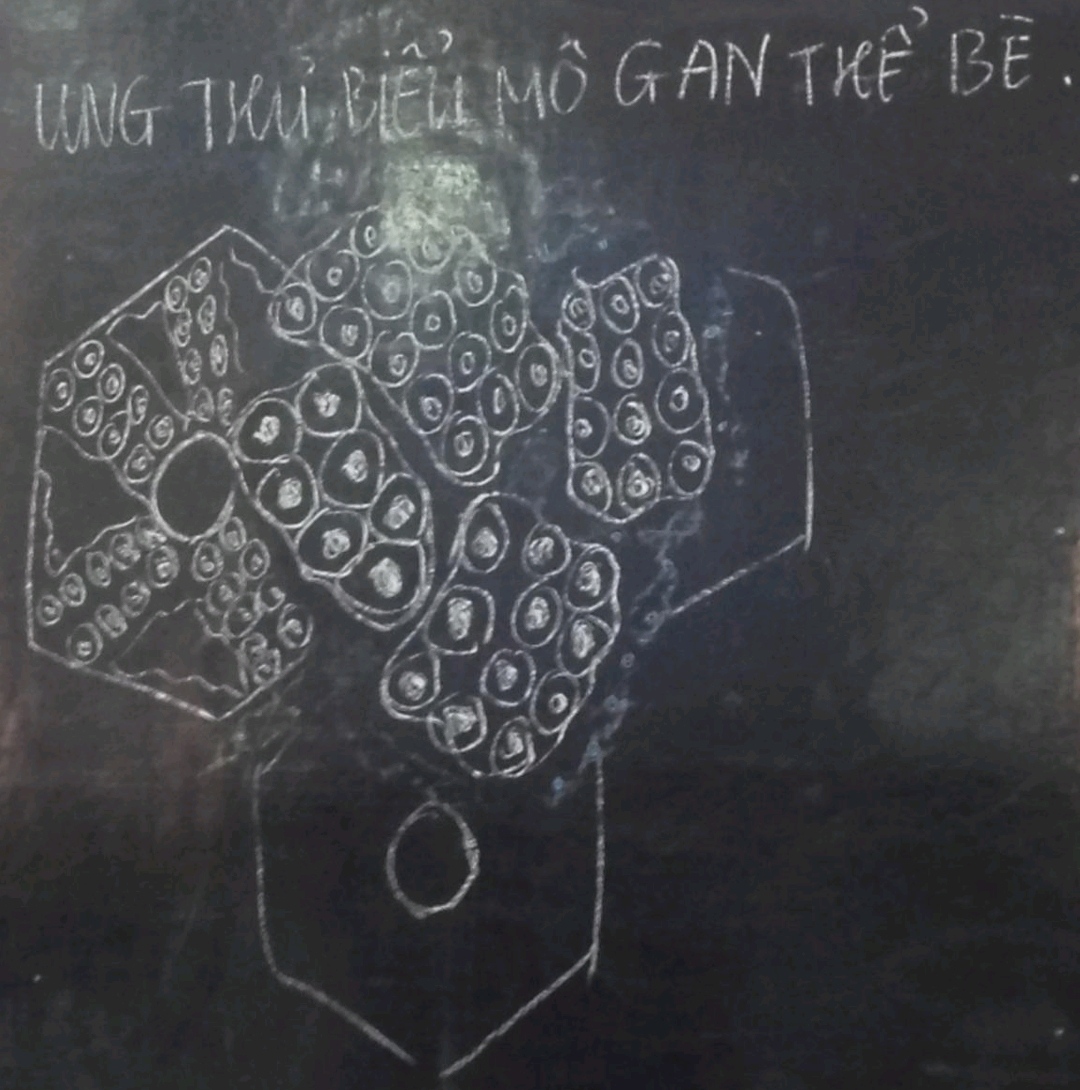 UNG THƯ BIỂU MÔ GAN THỂ BÈ.